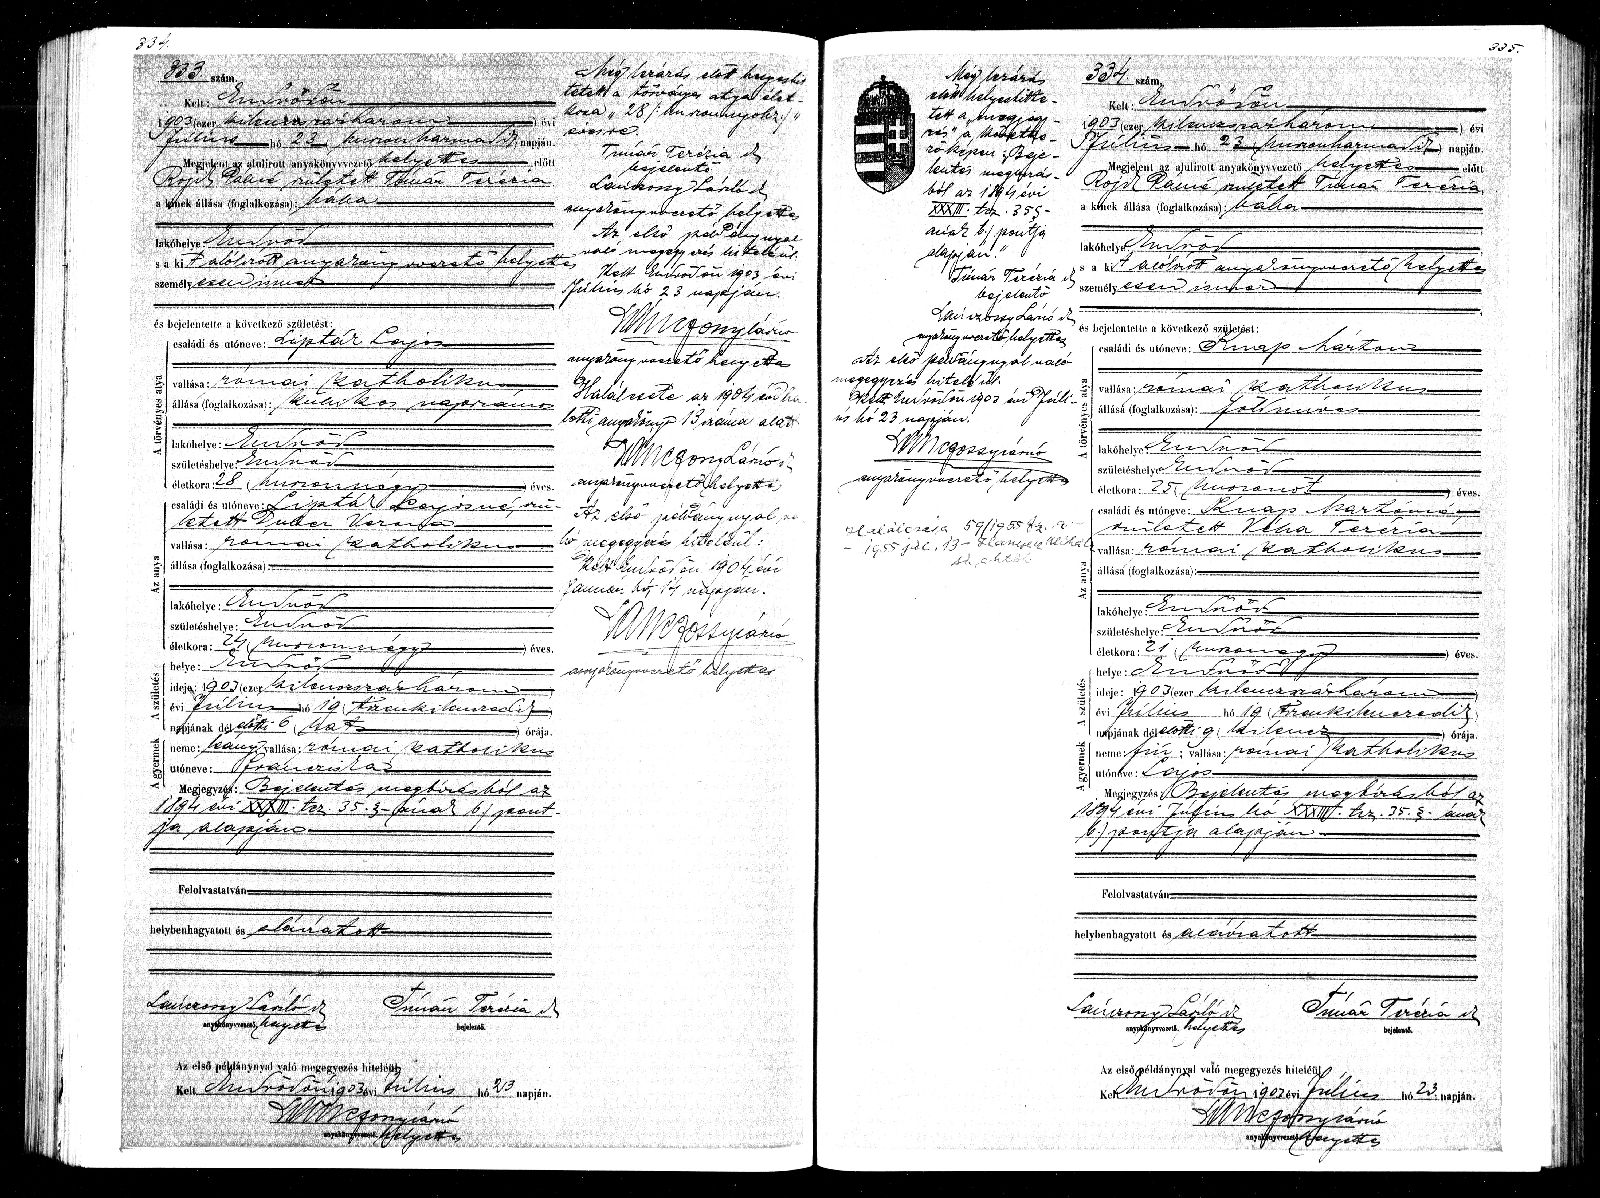 334.
333 szám.
Kelt: Endrődön
1903 (ezer kilenczszázhárom) évi
Július hó 23 (huszonharmadik) napján.
Megjelent az alulirott anyakönyvvezető helyettes előtt
Rojik Pálné született Timár Terézia
a kinek állása (foglalkozása): bába
lakóhelye Endrőd
s a kit alólirott anyakönyvvezető helyettes
személyesen ismer
és bejelentette a következő születést:
A törvényes atya
családi és utóneve: Liptár Lajos
vallása: római katholikus
állása (foglalkozása): kubikos napszámos
lakóhelye: Endrőd
születéshelye: Endrőd
életkora: 28 ( ) éves.
Az anya
családi és utóneve: Liptár Lajosné, szü-
letett Verona
vallása: római katholikus
állása (foglalkozása):
lakóhelye: Endrőd
születéshelye: Endrőd
életkora: 24 (huszonnégy) éves.
A születés
helye: Endrőd
ideje: 1903 (ezer kilenczszázhárom)
évi Július hó 19 (tizenkilenczedik)
napjának délelőtti 6 (hat) órája.
A gyermek
neme: leány vallása: római katholikus
utóneve: Francziska
Megjegyzés: Bejelentés megbízásból az
1894 évi XXXIII. tcz. 35. §-ának b) pont-
ja alapján
Felolvastatván
helybenhagyatott és aláíratott
Lánczossy László sk Timár Terézia sk
anyakönyvvezető helyettes bejelentő.
Az első példánynyal való megegyezés hiteléül
Kelt Endrődön 1903 évi Július hó 23 napján.
Lánczossy László
anyakönyvvezető helyettes
Még lezárás előtt helyesbit-
tetett a törvényes atya élet-
kora "28 ( )"
évesre.
Timár Terézia sk
bejelentő
Lánczossy László sk
anyakönyvvezető helyettes
Az első példánynyal
való megegyezés hiteléül.
Kelt Endrődön 1903 évi
Július hó 23 napján.
Lánczossy László
anyakönyvvezető helyettes
Halálesete az 1904 évi ha-
lotti anyakönyv 13 száma alatt
Lánczossy László
anyakönyvvezető helyettes
Az első példánynyal va-
ló megegyezés hiteléül:
Kelt Endrődön 1904 évi
Január hó 14 napján.
Lánczossy László
anyakönyvvezető helyettes
335.
Még lezárás
előtt helyesbitte-
tett a "megjegy-
zés" a követke-
zőképen: "Beje-
lentés megbízás-
ból az 1894 évi
XXXIII. tcz. 35 §-
ának b) pontja
alapján."
Timár Terézia sk
bejelentő
Lánczossy László sk
anyakönyvvezető helyettes
Az első példánynyal való
megegyezés hiteléül.
Kelt Endrődön 1903 évi Júli-
us hó 23 napján.
Lánczossy László
anyakönyvvezető helyettes
Halálesete 59/1955
1955 júl. 13
334 szám.
Kelt: Endrődön
1903 (ezer kilenczszázhárom) évi
Július hó 23 (huszonharmadik) napján.
Megjelent az alulirott anyakönyvvezető helyettes előtt
Rojik Pálné született Timár Terézia
a kinek állása (foglalkozása): bába
lakóhelye Endrőd
s a kit alólirott anyakönyvvezető helyettes
személyesen ismer
és bejelentette a következő születést:
A törvényes atya
családi és utóneve: Knap Márton
vallása: római katholikus
állása (foglalkozása): földmíves
lakóhelye: Endrőd
születéshelye: Endrőd
életkora: 25 (huszonöt) éves.
Az anya
családi és utóneve: Knap Mártonné,
született Veha Terézia
vallása: római katholikus
állása (foglalkozása):
lakóhelye: Endrőd
születéshelye: Endrőd
életkora: 21 ( ) éves.
A születés
helye: Endrőd
ideje: 1903 (ezer kilenczszázhárom)
évi Július hó 19 (tizenkilenczedik)
napjának délelőtti 9 (kilencz) órája.
A gyermek
neme: fiú; vallása: római katholikus
utóneve: Lajos
Megjegyzés: Bejelentés megbízásból az
1894 évi Július hó XXXIII. tcz. 35. §-ának
b) pontja alapján
Felolvastatván
helybenhagyatott és aláíratott
Lánczossy László sk Timár Terézia sk
anyakönyvvezető helyettes bejelentő.
Az első példánynyal való megegyezés hiteléül
Kelt Endrődön 1903 évi Július hó 23. napján.
Lánczossy László
anyakönyvvezető helyettes